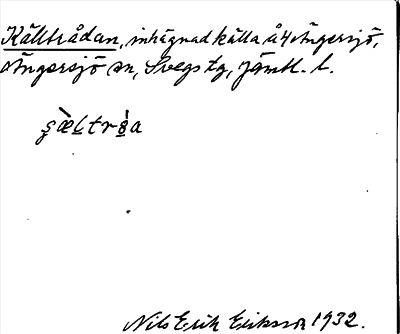 Källtrådan, inhägnad källa å 4 Ängersjö,
Ängersjö sn, Svegs tg, Jämtl. l.
Nils Erik Eriksson 1932.